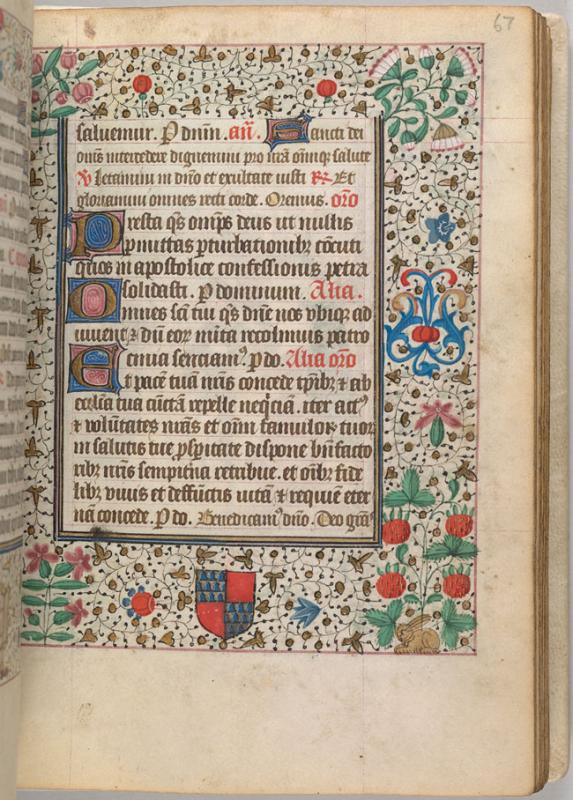 67
saluemur. P dnm̄. an̄. Sancti dei
om̄s intercedere dignemini pro nrā om̄iūq̄ salute
V Letamini in dn̄o et exultate iusti R Et
gloriamini omnes recti corde. Oremus. or̄o
Presta qs̄ om̄ps deus ut nullis
nos p̄mittas p̄turbationibȝ cōcuti
quos in apostolice confessionis petra
solidasti. P dominum. Alia.
Omnes sc̄i tui qs̄ dn̄e nos vbiqȝ ad
iuuent ⁊ dū eoꝝ mīta recolimus patro
cinia senciamꝰ P do. Alia or̄o
Et pacē tuā nr̄is concede tp̄ribȝ ⁊ ab
ecclīa tua cūctam repelle neq̄ciā. iter actꝰ
⁊ volūtates nr̄as et om̄i famuloꝝ tuoꝝ
in salutis tue p̄sp̄itate dispone bn̄facto
ribȝ nr̄is sempit̄na retribue. et om̄ibȝ fide
libȝ viuis et deffūctis vitā ⁊ requiē eter
nā concede. P do. Benedicamꝰ dn̄o. Deo grās̄